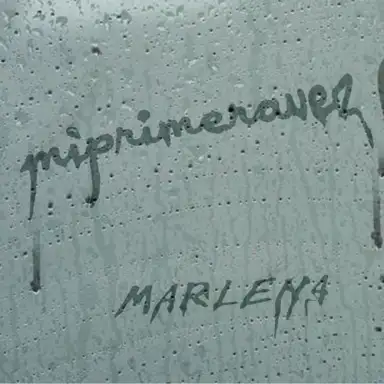 miprimeravez
MARLENA